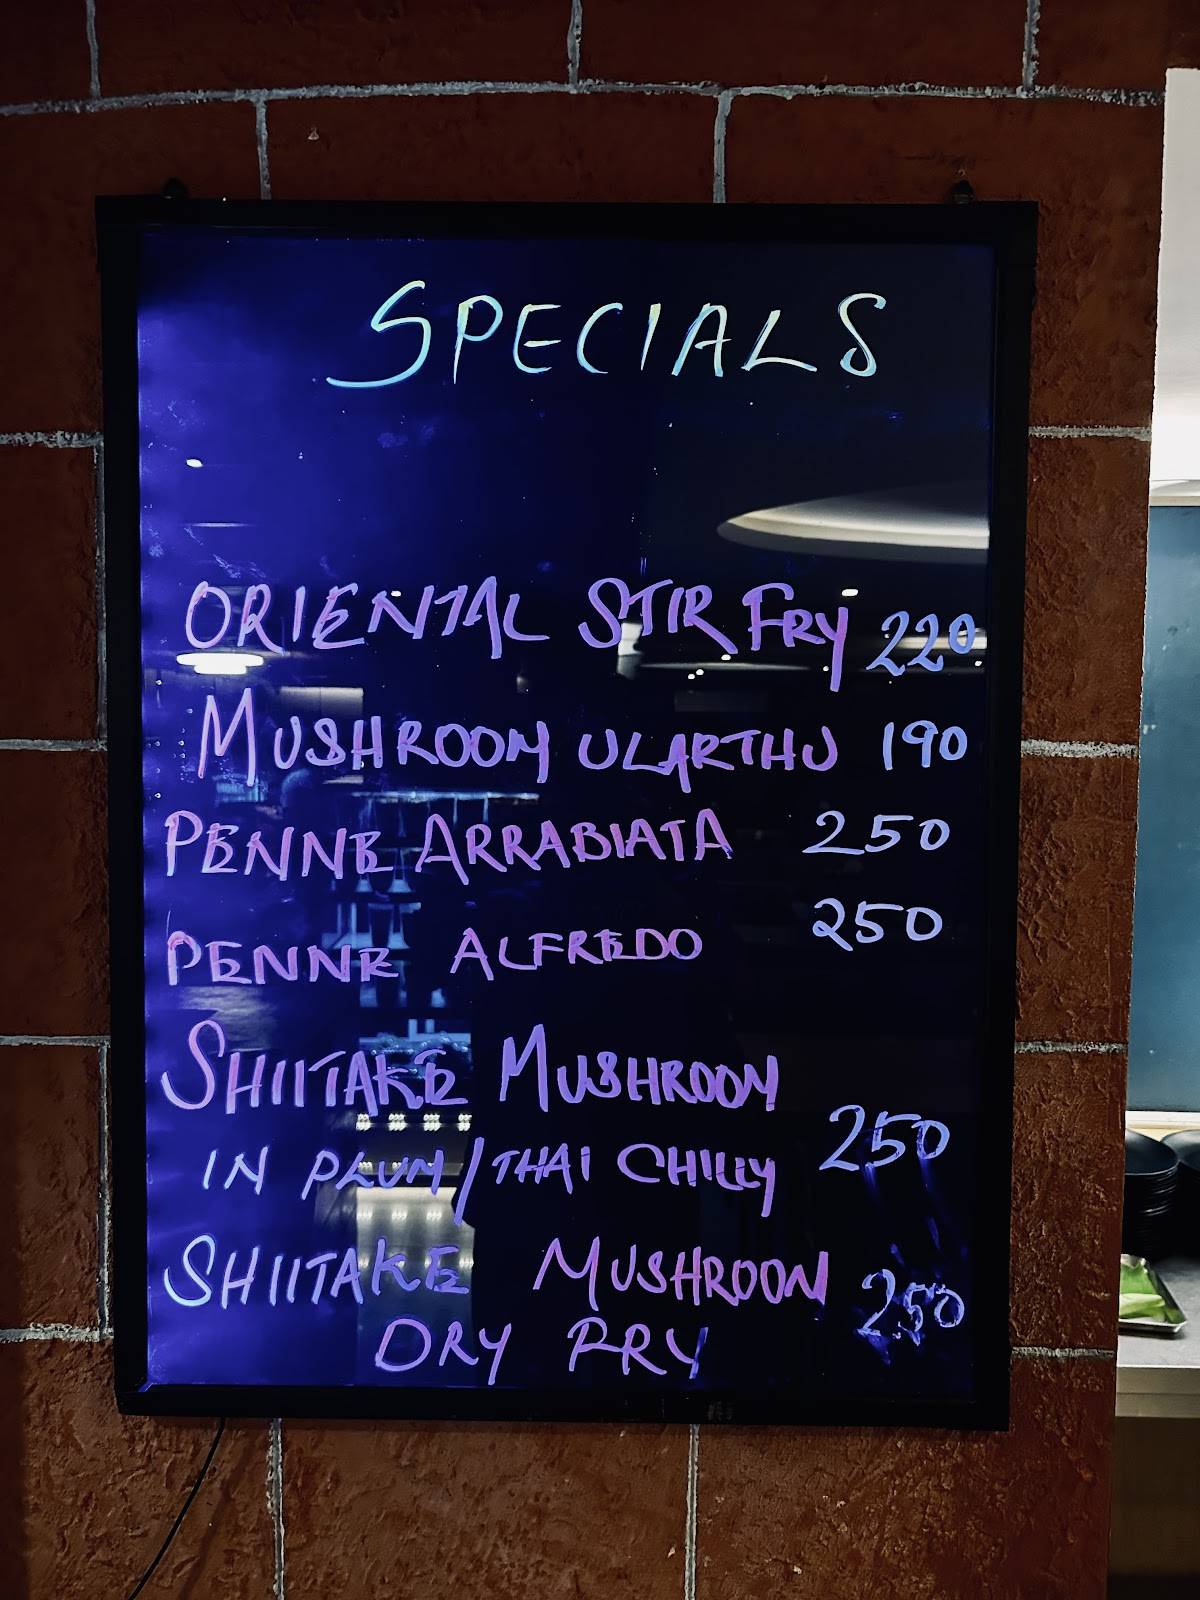 SPECIALS
ORIENTAL STIR FRY 220
MUSHROOM ULARTHU 190
PENNE ARRABIATA 250
PENNE ALFREDO 250
SHIITAKE MUSHROOM
IN PLUM/THAI CHILLY 250
SHIITAKE MUSHROON 250
DRY FRY